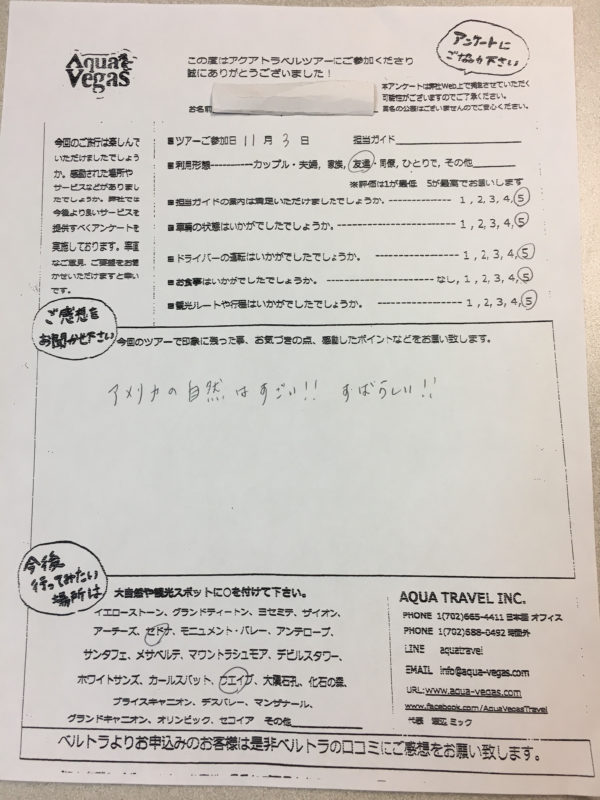 Aqua Vegas
この度はアクアトラベルツアーにご参加くださり
誠にありがとうございました！
アンケートに
ご協力下さい
本アンケートは弊社Web上で発表させていただく
可能性がございますのでご了承ください。
実名の公表はございませんのでご安心ください。
お名前
今回のご旅行は楽しんで
いただけましたでしょう
か。感動された場所や
サービスなどがありまし
たでしょうか。弊社では
今後より良いサービスを
提供すべくアンケートを
実施しております。率直
なご意見、ご要望をお聞
かせいただけますと幸い
です。
■ツアーご参加日 11月 3日 担当ガイド
■利用形態-----------カップル・夫婦, 家族, 友達・同僚, ひとりで, その他
※評価は1が最低 5が最高でお願いします
■担当ガイドの案内は満足いただけましたでしょうか。 ---------- 1, 2, 3, 4, 5
■車輌の状態はいかがでしたでしょうか。------------------ 1, 2, 3, 4, 5
■ドライバーの運転はいかがでしたでしょうか。 -------------- 1, 2, 3, 4, 5
■お食事はいかがでしたでしょうか。 ------------------ なし, 1, 2, 3, 4, 5
■観光ルートや行程はいかがでしたでしょうか。 -------------- 1, 2, 3, 4, 5
ご感想を
お聞かせ下さい
今回のツアーで印象に残った事、お気づきの点、感動したポイントなどをお願い致します。
アメリカの自然はすごい!! すばらしい!!
今後
行ってみたい
場所は
大自然や観光スポットに○を付けて下さい。
イエローストーン、グランドティートン、ヨセミテ、ザイオン、
アーチーズ、セドナ、モニュメント・バレー、アンテロープ、
サンタフェ、メサベルデ、マウントラシュモア、デビルスタワー、
ホワイトサンズ、カールスバット、ウエイブ、大隕石孔、化石の森、
ブライスキャニオン、デスバレー、マンザナール、
グランドキャニオン、オリンピック、セコイア その他
AQUA TRAVEL INC.
PHONE 1(702)665-4411 日本語 オフィス
PHONE 1(702)588-0492 時間外
LINE aquatravel
EMAIL info@aqua-vegas.com
URL:www.aqua-vegas.com
www.facebook.com/AquaVegasTravel
代表 渡辺 ミック
ベルトラよりお申込みのお客様は是非ベルトラの口コミにご感想をお願い致します。